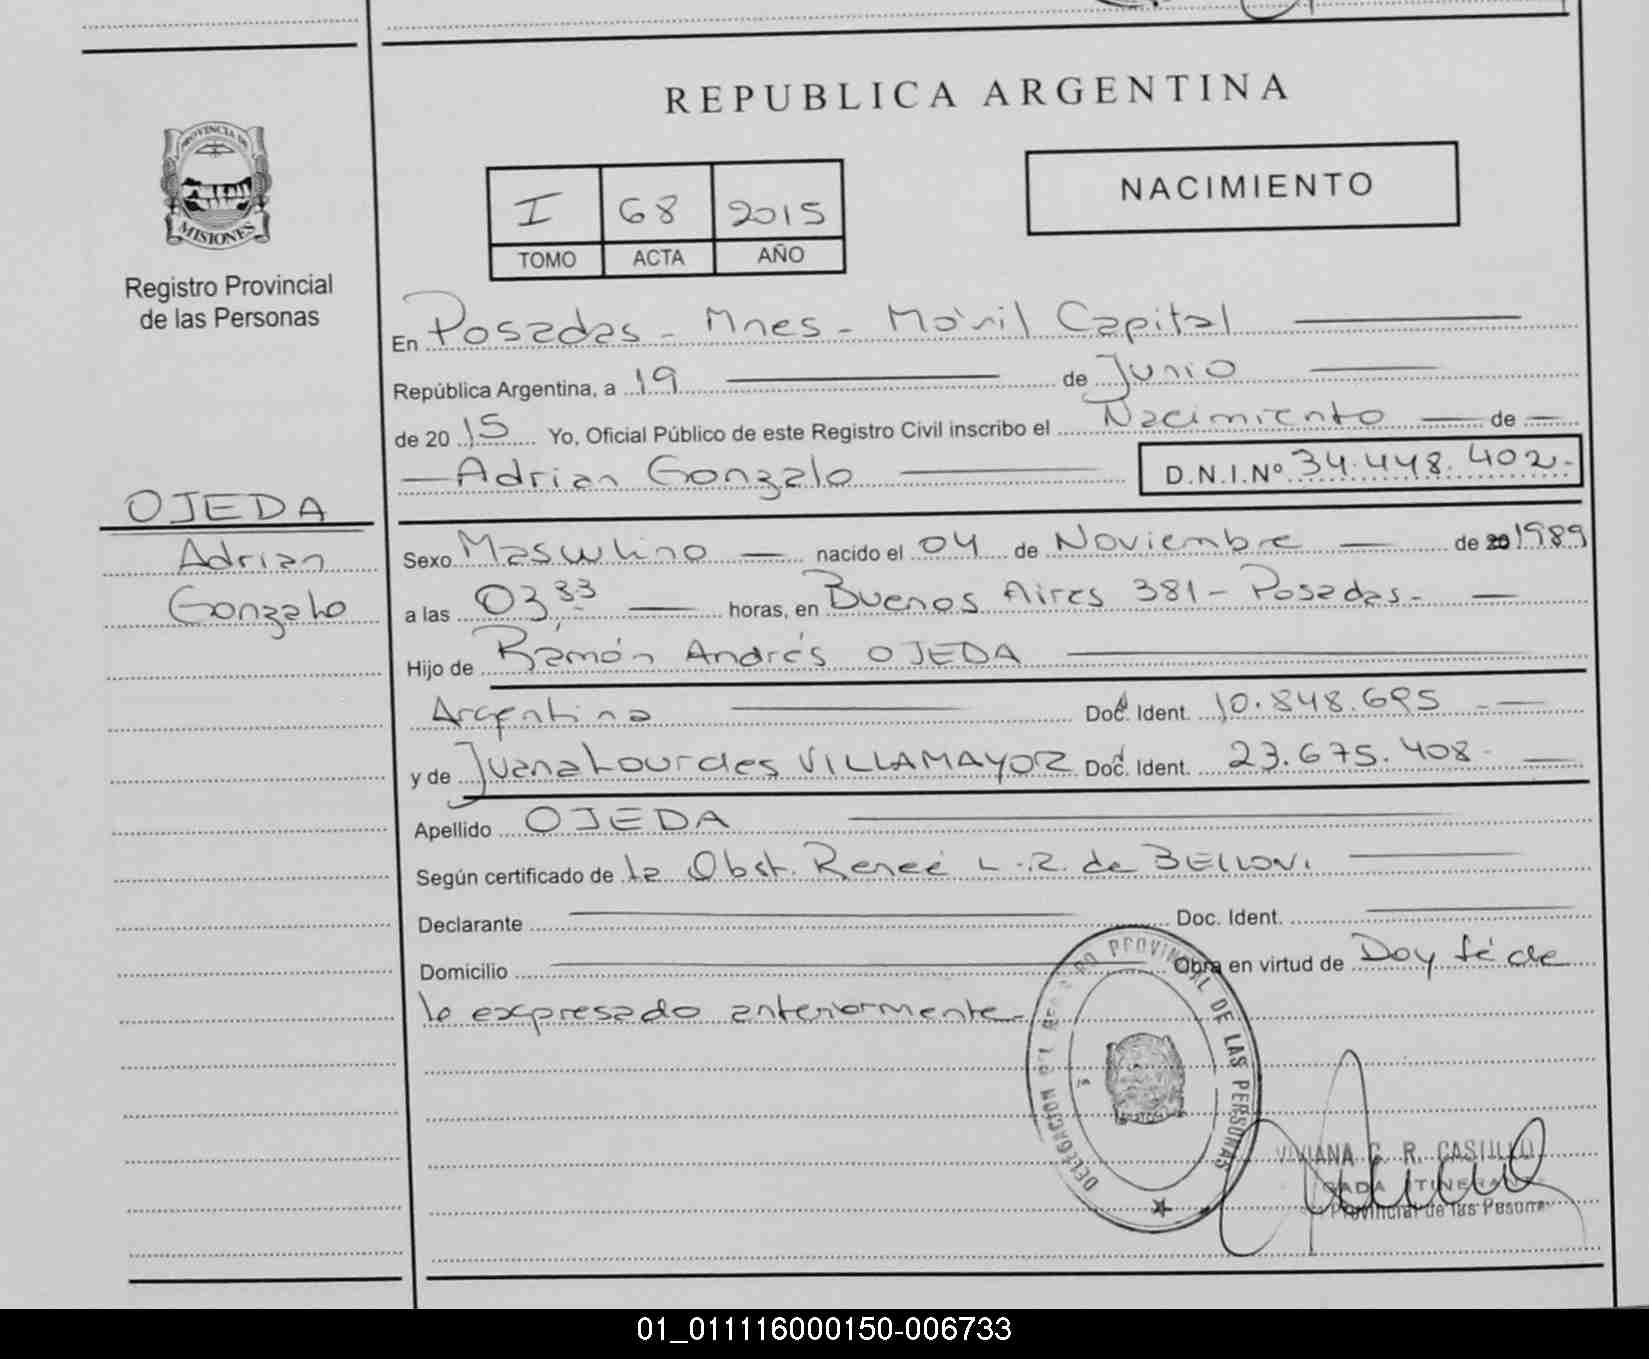 REPUBLICA ARGENTINA
PROVINCIA DE
MISIONES
Registro Provincial
de las Personas
I 68 2015
TOMO ACTA AÑO
NACIMIENTO
En Posadas - Mnes - Móvil Capital
República Argentina, a 19 de Junio
de 2015 Yo, Oficial Público de este Registro Civil inscribo el Nacimiento de
Adrian Gonzalo D.N.I.Nº 34.448.402.-
OJEDA
Adrian
Gonzalo
Sexo Masculino nacido el 04 de Noviembre de 20 1989
a las 03,33 horas, en Buenos Aires 381 - Posadas -
Hijo de Ramón Andrés OJEDA
Argentina Doc. Ident. 10.848.695
y de Juana Lourdes VILLAMAYOR Doc. Ident. 23.675.408
Apellido OJEDA
Según certificado de la Obst. Reneé L. R. de BELLONI
Declarante Doc. Ident.
Domicilio Obra en virtud de Doy fé de
lo expresado anteriormente.-
PROVINCIAL DE LAS PERSONAS
DELEGACION
VIVIANA G. R. CASTILLO
ITINERANTE
Provincial de las Personas
01_011116000150-006733